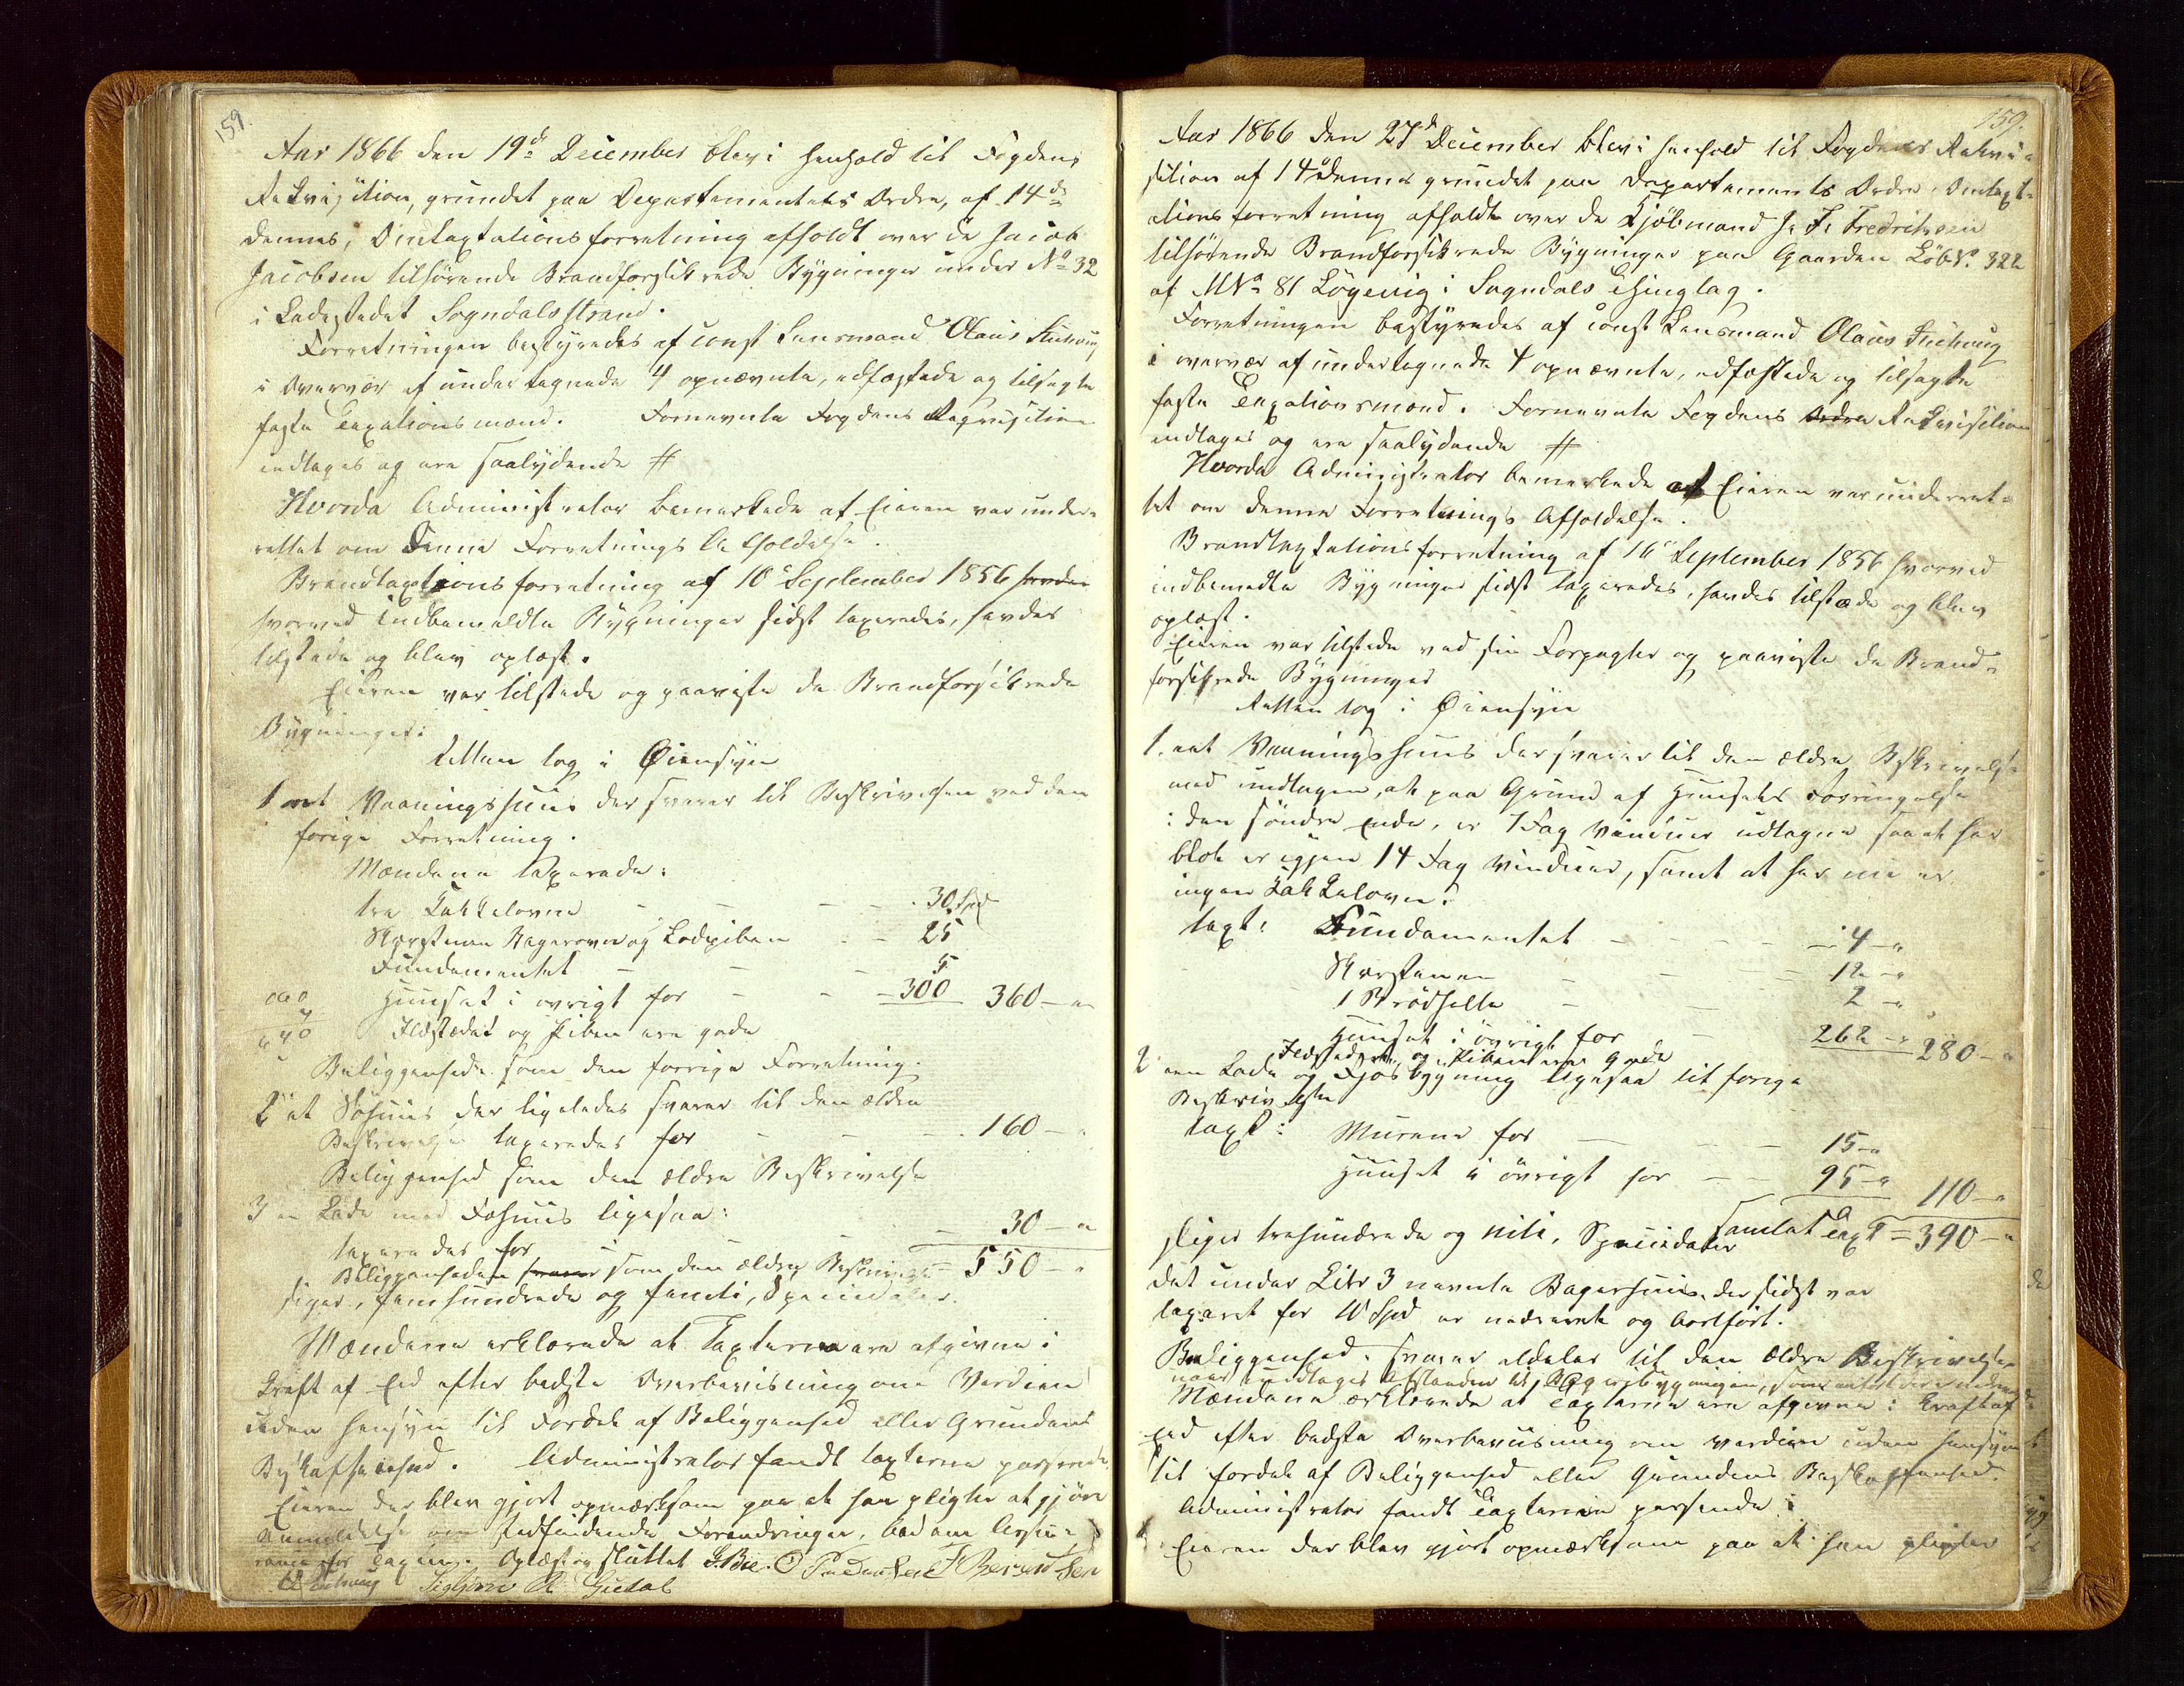 159.
Aar 1866 den 19de December blev i Henhold til Fogdens
Rekvisition, grundet paa Departementets Ordre, af 14de
dennes, Omtaxtationsforretning afholdt over de Jacob
Jacobsen tilhørende Brandforsikrede Bygninger under No 32
i Ladestedet Sogndalsstrand.
Forretningen bestyredes af const Lensmand Olaus
i Overvær af undertegnede 4 opnævnte, edfæstede og tilsagte
faste Taxationsmænd. Fornævnte Fogdens Reqvisition
indtages og er saalydende #
Hvorda Administrator bemærkede at Eieren var under-
rettet om denne Forretnings Afholdelse.
Brandtaxtationsforretning af 10de September 1856
hvorved indbemeldte Bygninger sidst taxeredes, havdes
tilstede og blev oplæst.
Eieren var tilstede og paaviste de Brandforsikrede
Bygninger:
Retten tog i Øiensyn
1 et Vaaningshuus der svarer til Beskrivelsen ved den
forige Forretning.
Mændene taxerede:
tre Kakkelovne - - - 30 Spd
Skorstenen Bagerovn og Lodpiben - - 25
Fundamentet - - - 5
Huuset i øvrigt for - - - 300 360 - "
Ildstedet og Piben ere gode
Beliggenheden som den forrige Forretning.
2 et Søhuus der ligeledes svarer til den ældre
Beskrivelse taxeredes for - - - 160 - "
Beliggenhed som den ældre Beskrivelse
3 en Lade med Fæhuus ligesaa:
taxeredes for - 30 - "
Beliggenheden som den ældre Beskrivelse = 550 - "
siger, femhundrede og femti, Speciedaler.
Mændene erklærede at Taxterne ere afgivne i
Kraft af Eed efter bedste Overbevisning om Værdien
uden Hensyn til Fordel af Beliggenhed eller Grundens
Beskaffenhed. Administrator fandt taxterne passende.
Eieren der blev gjort opmærksom paa at han pligter at gjøre
Anmeldelse om stedfindende Forandringer, bad om
for Taxten. Oplæst og sluttet
159.
Aar 1866 den 27de December blev i Henhold til Fogdens Rekvi-
sition af 14de dennes grundet paa Departements Ordre, Omtaxt-
ationsforretning afholdt over de Kjøbmand J. F. Fredriksen
tilhørende Brandforsikrede Bygninger paa Gaarden LøbNo. 322
af MNo 81 Løgevig i Sogndals Thinglag.
Forretningen bestyredes af const Lensmand Olaus
i overvær af undertegnede 4 opnævnte, edfæstede og tilsagte
faste Taxationsmænd. Fornævnte Fogdens Ordre Rekvisition
indtages og er saalydende #
Hvorda Administrator bemærkede at Eieren var underret-
tet om denne Forretnings Afholdelse.
Brandtaxtationsforretning af 16de September 1856 hvorved
indbemeldte Bygninger sidst taxeredes, havdes tilstæde og blev
oplæst.
Eieren var tilstede ved sin Forpagter og paaviste de Brand-
forsikrede Bygninger
Retten tog i Øiensyn
1. et Vaaningshuus der svarer til den ældre Beskrivelse
med undtagen, at paa Grund af Huusets Forringelse
i den søndre Ende, er 1 Fag Vinduer udtagne saa at her
blot er igjen 14 Fag Vinduer, samt at her nu er
ingen Kakkelovn.
taxt: Fundamentet - - - 4 - "
Skorstenen - - - 12 - "
1 Brødhelle - - 2 - "
Huuset i øvrigt for - 262 - " 280 - "
Ildstedet og Piben ere gode
2 en Lade og Fjøsbygning ligesaa til forige
Beskrivelse
taxt: Murene for - - - 15 - "
Huuset i øvrigt for - - 95 - " 110 - "
samlet Taxt = 390 - "
siger trehundrede og niti, Speciedaler
Det under Litr 3 nævnte Bagerhuus, der sidst var
taxeret for 10 Spd er nedrevet og bortført.
Beliggenhed, svarer aldeles til den Ældre Beskrivelse
naar undtages Afstanden til Bagerbygningen, som
Mændene erklærede at Taxterne ere afgivne i Kraft af
Eed efter bedste Overbeviisning om Værdien uden Hensyn
til fordel af Beliggenhed eller Grundens Beskaffenhed.
Administrator fandt Taxterne passende.
Eieren der blev gjort opmærksom paa at han pligter